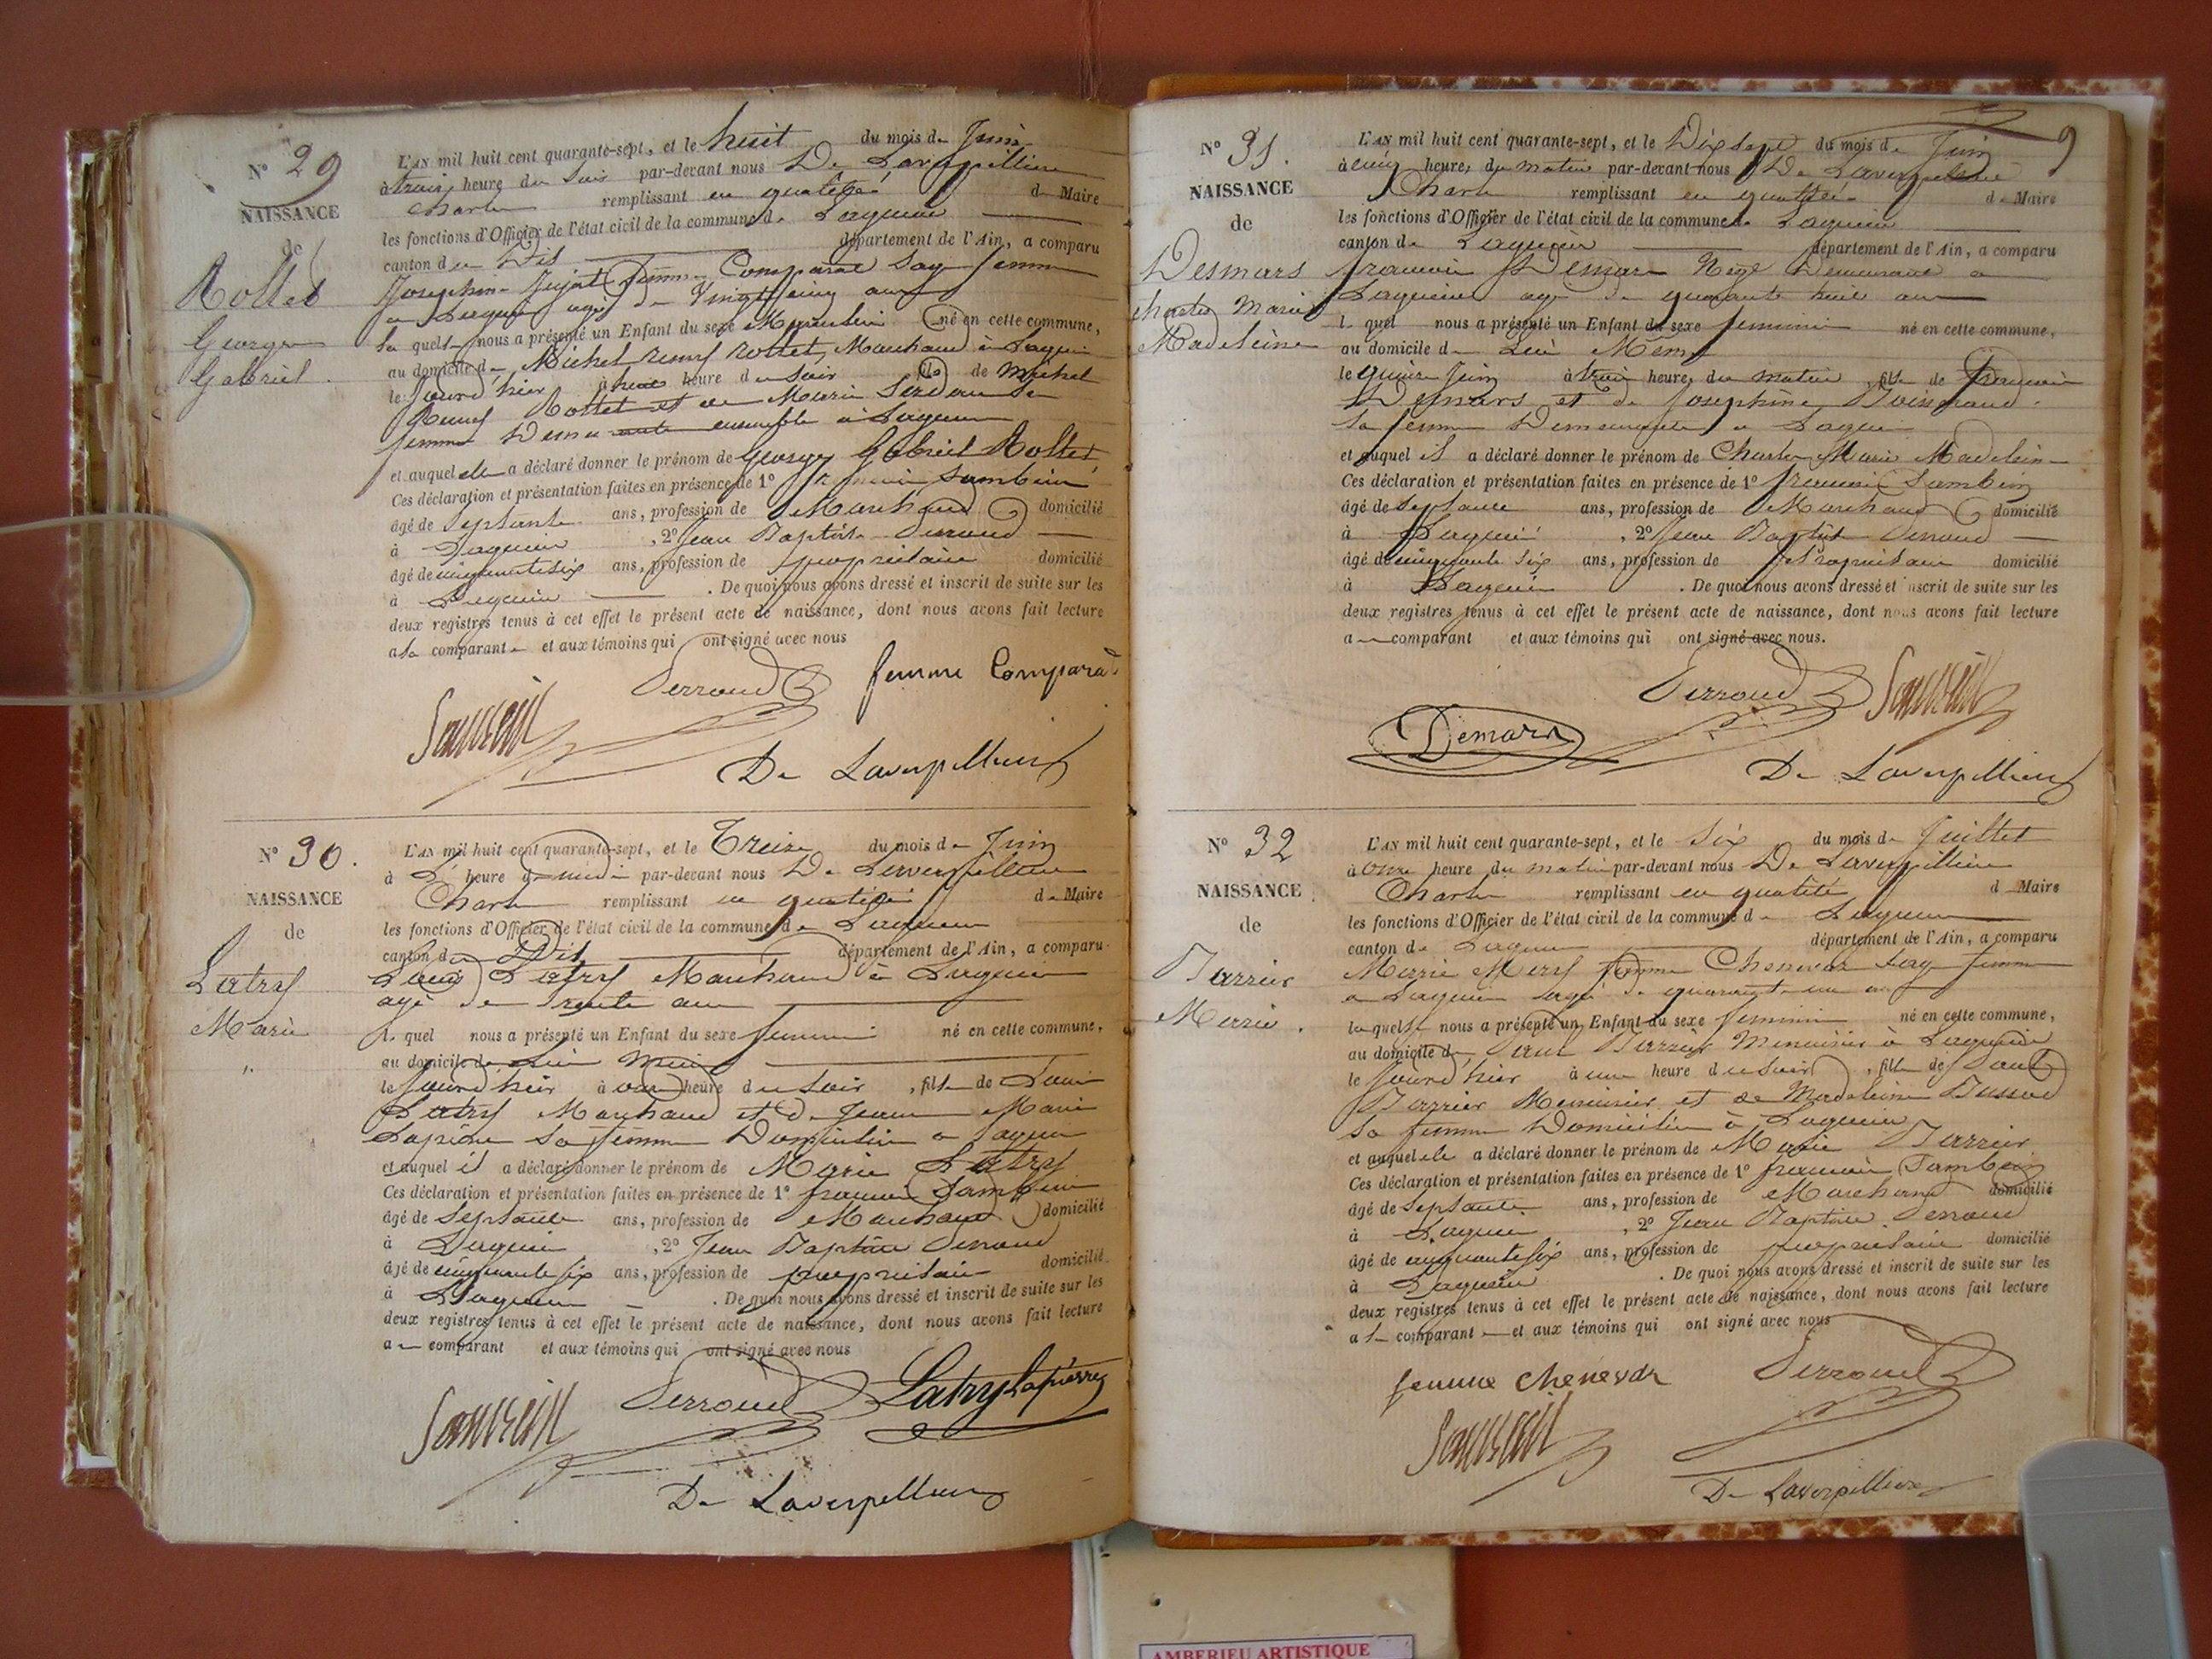 N° 29
NAISSANCE
de
Rollet
Georges
Gabriel.
L'AN mil huit cent quarante-sept, et le huit du mois de Juin
à trois heure du Soir par-devant nous De Laverpilliere
Charles remplissant en qualité de Maire
les fonctions d'Officier de l'état civil de la commune de Lagnieu
canton du Dit département de l'Ain, a comparu
Josephine Jujat femme Comparat Sag femme
a Lagnieu agé de Vingt cinq ans
la quelle nous a présenté un Enfant du sexe Masculin né en cette commune,
au domicile de Michel Remy Rollet, Marchand à Lagnieu
le Jourd'hier à huit heure du Soir fils de Michel
Remy Rollet et de Marie sa
femme ensemble à Lagnieu
et auquel elle a déclaré donner le prénom de Georges Gabriel Rollet
Ces déclaration et présentation faites en présence de 1° françois Sambin
âgé de Septante ans, profession de Marchand domicilié
à Lagnieu , 2° Jean Baptiste Perroud
âgé de cinquante six ans, profession de propriétaire domicilié
à Lagnieu . De quoi nous avons dressé et inscrit de suite sur les
deux registres tenus à cet effet le présent acte de naissance, dont nous avons fait lecture
a la comparante et aux témoins qui ont signé avec nous
Perroud femme Comparat
De Laverpilliere
N° 30.
NAISSANCE
de
Latry
Marie
L'AN mil huit cent quarante-sept, et le Treize du mois de Juin
à L' heure de midi par-devant nous De Laverpilliere
Charles remplissant en qualité de Maire
les fonctions d'Officier de l'état civil de la commune de Lagnieu
canton du Dit département de l'Ain, a comparu
Louis Latry Marchand à Lagnieu
agé de Trente ans
le quel nous a présenté un Enfant du sexe feminin né en cette commune,
au domicile de Lui même
le Jourd'hier à onze heure du soir , fille de Louis
Latry Marchand et de Jeanne Marie
Lapierre sa femme Domiciliés a Lagnieu
et auquel il a déclaré donner le prénom de Marie Latry
Ces déclaration et présentation faites en présence de 1° françois Sambin
âgé de Septante ans, profession de Marchand domicilié
à Lagnieu , 2° Jean Baptiste Perroud
âgé de cinquante six ans, profession de propriétaire domicilié
à Lagnieu . De quoi nous avons dressé et inscrit de suite sur les
deux registres tenus à cet effet le présent acte de naissance, dont nous avons fait lecture
au comparant et aux témoins qui ont signé avec nous
Perroud Latry Lapierre
De Laverpilliere
9
N° 31.
NAISSANCE
de
Desmars
charles Marie
Madeleine
L'AN mil huit cent quarante-sept, et le Dix sept du mois de Juin
à cinq heure, du matin par-devant nous De Laverpilliere
Charles remplissant en qualité de Maire
les fonctions d'Officier de l'état civil de la commune de Lagnieu
canton de Lagnieu département de l'Ain, a comparu
françois Desmars Demeurant a
Lagnieu agé de quarante huit ans
le quel nous a présenté un Enfant du sexe feminin né en cette commune,
au domicile de Lui Même
le quinze Juin à trois heure, du matin , fille de françois
Desmars et de Josephine
sa femme Demeurant a Lagnieu
et auquel il a déclaré donner le prénom de Charles Marie Madeleine
Ces déclaration et présentation faites en présence de 1° françois Sambin
âgé de Septante ans, profession de Marchand domicilié
à Lagnieu , 2° Jean Baptiste Perroud
âgé de cinquante six ans, profession de Propriétaire domicilié
à Lagnieu . De quoi nous avons dressé et inscrit de suite sur les
deux registres tenus à cet effet le présent acte de naissance, dont nous avons fait lecture
au comparant et aux témoins qui ont signé avec nous.
Perroud
Demars
De Laverpilliere
N° 32
NAISSANCE
de
Barrier
Marie.
L'AN mil huit cent quarante-sept, et le Six du mois de Juillet
à onze heure du matin par-devant nous De Laverpilliere
Charles remplissant en qualité d Maire
les fonctions d'Officier de l'état civil de la commune de Lagnieu
canton de Lagnieu département de l'Ain, a comparu
Marie Mery femme Chenevar Sag femme
a Lagnieu agé de quarante un ans
la quelle nous a présenté un Enfant du sexe feminin né en cette commune,
au domicile de Paul Barrier Menuisier à Lagnieu
le Jourd'hier à une heure du soir , fille de Paul
Barrier Menuisier et de Madeleine
sa femme Domiciliés à Lagnieu
et auquel elle a déclaré donner le prénom de Marie Barrier
Ces déclaration et présentation faites en présence de 1° françois Sambin
âgé de Septante ans, profession de Marchand domicilié
à Lagnieu , 2° Jean Baptiste Perroud
âgé de cinquante six ans, profession de propriétaire domicilié
à Lagnieu . De quoi nous avons dressé et inscrit de suite sur les
deux registres tenus à cet effet le présent acte de naissance, dont nous avons fait lecture
a la comparante et aux témoins qui ont signé avec nous
femme chenevar Perroud
De Laverpilliere
AMBERIEU ARTISTIQUE